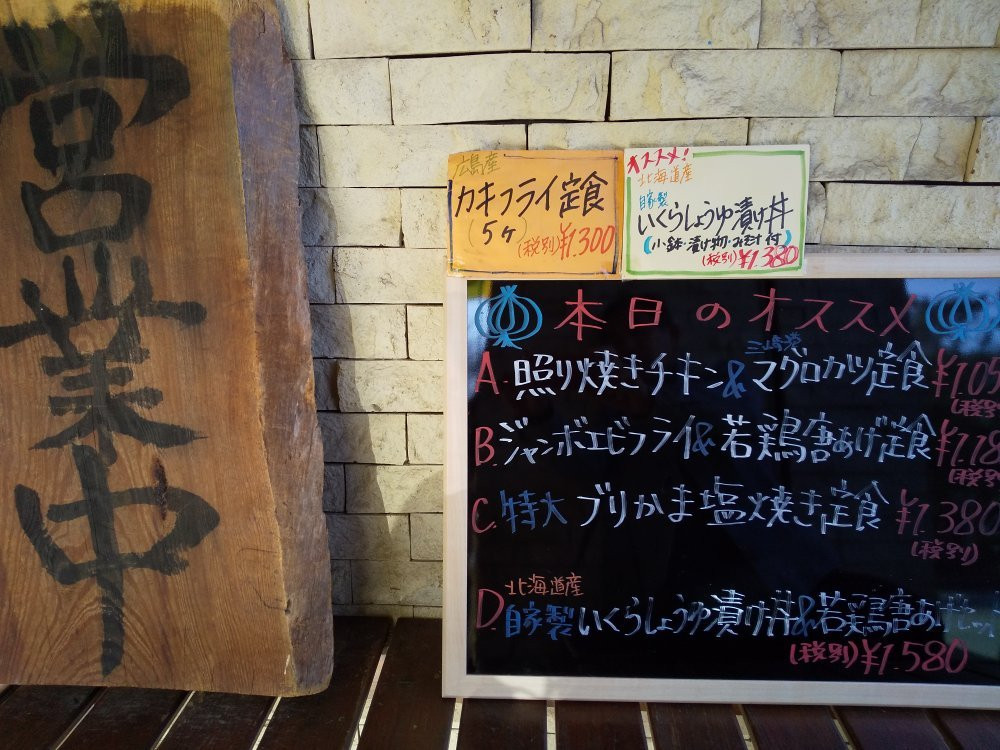 営業中
広島産
カキフライ定食
(5ヶ)
(税別)¥1300
オススメ!
北海道産
自家製
いくらしょうゆ漬け丼
(小鉢・漬け物・みそ汁付)
(税別)¥1.380
本日のオススメ
A. 照り焼きチキン&マグロカツ定食 ¥1.05
(税別
B. ジャンボエビフライ&若鶏唐あげ定食 ¥1.18
(税別
C. 特大 ブリかま塩焼き定食 ¥1.380
(税別)
北海道産
D. 自家製いくらしょうゆ漬け丼&若鶏唐あげセッ
(税別)¥1.580